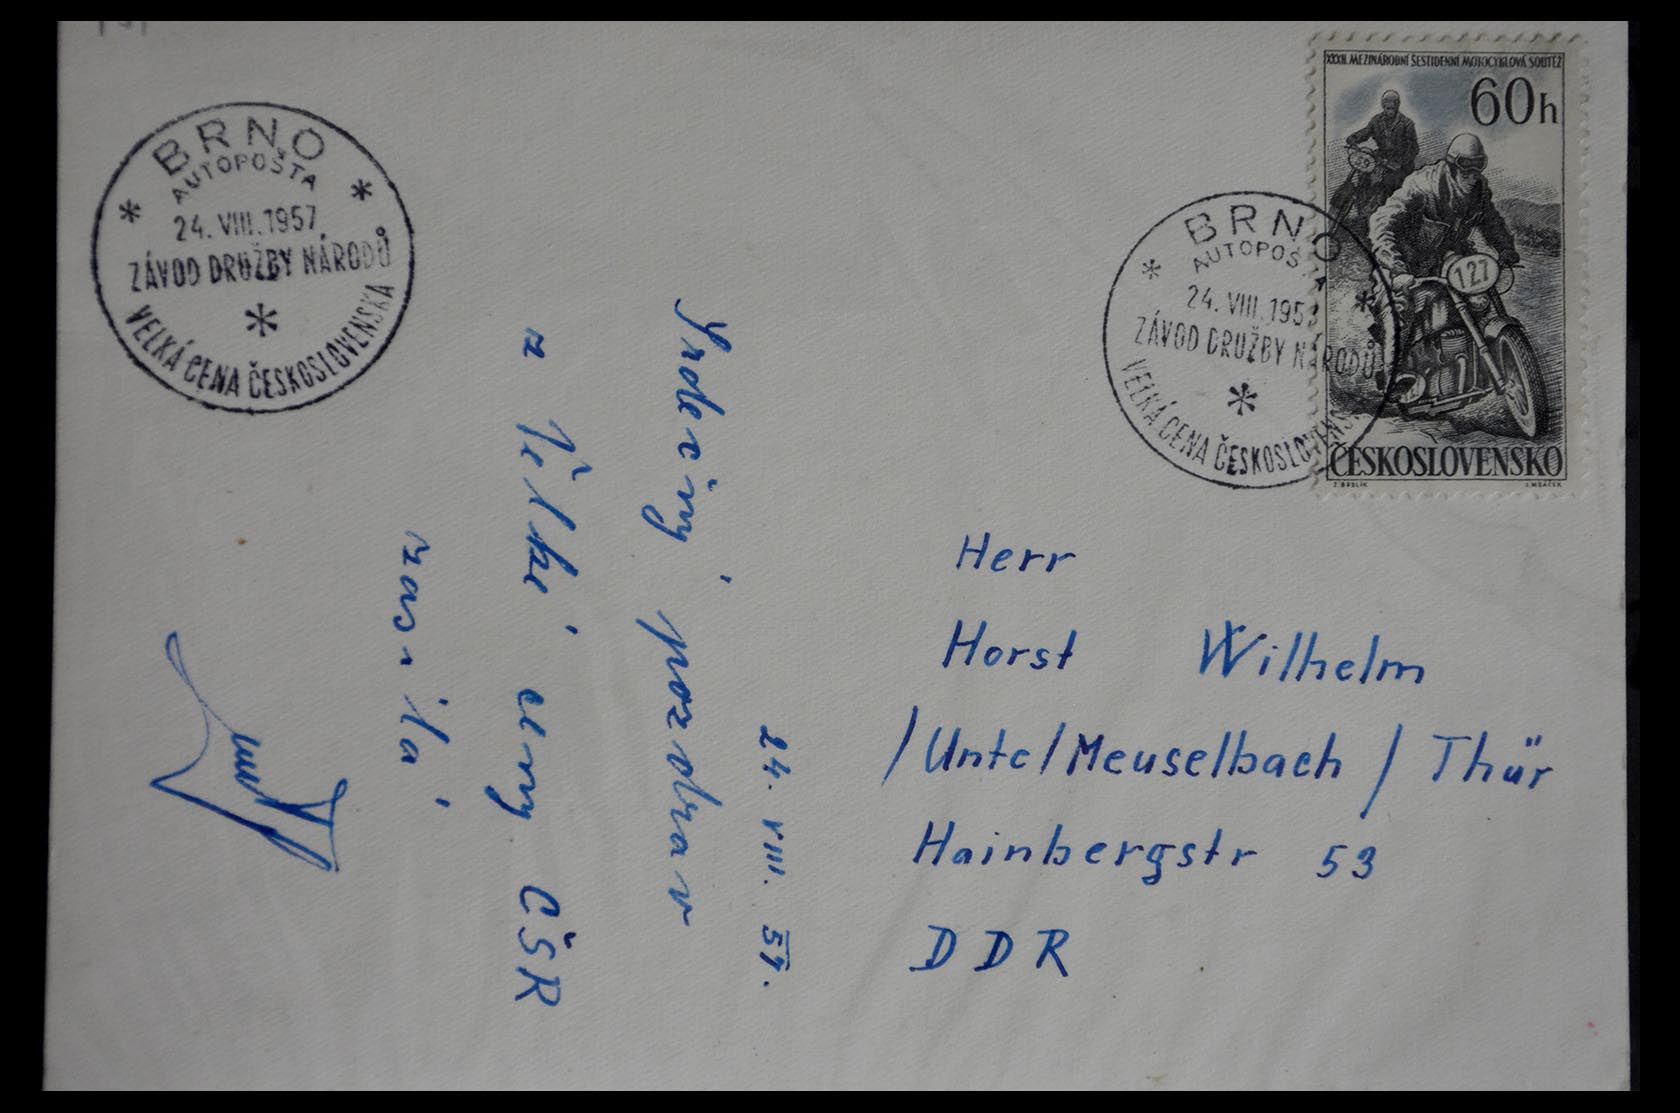 BRNO
AUTOPOŠTA
24. VIII. 1957
ZÁVOD DRUŽBY NÁRODŮ
VELKÁ CENA ČESKOSLOVENSKA
BRNO
AUTOPOŠTA
24. VIII. 1957
ZÁVOD DRUŽBY NÁRODŮ
VELKÁ CENA ČESKOSLOVENSKA
XXXII. MEZINÁRODNÍ ŠESTIDENNÍ MOTOCYKLOVÁ SOUTĚŽ
60h
127
ČESKOSLOVENSKO
24. VIII. 57.
Srdečný pozdrav
z Velké ceny ČSR
zasílá
Herr
Horst Wilhelm
/Untc/Meuselbach / Thür
Hainbergstr 53
DDR